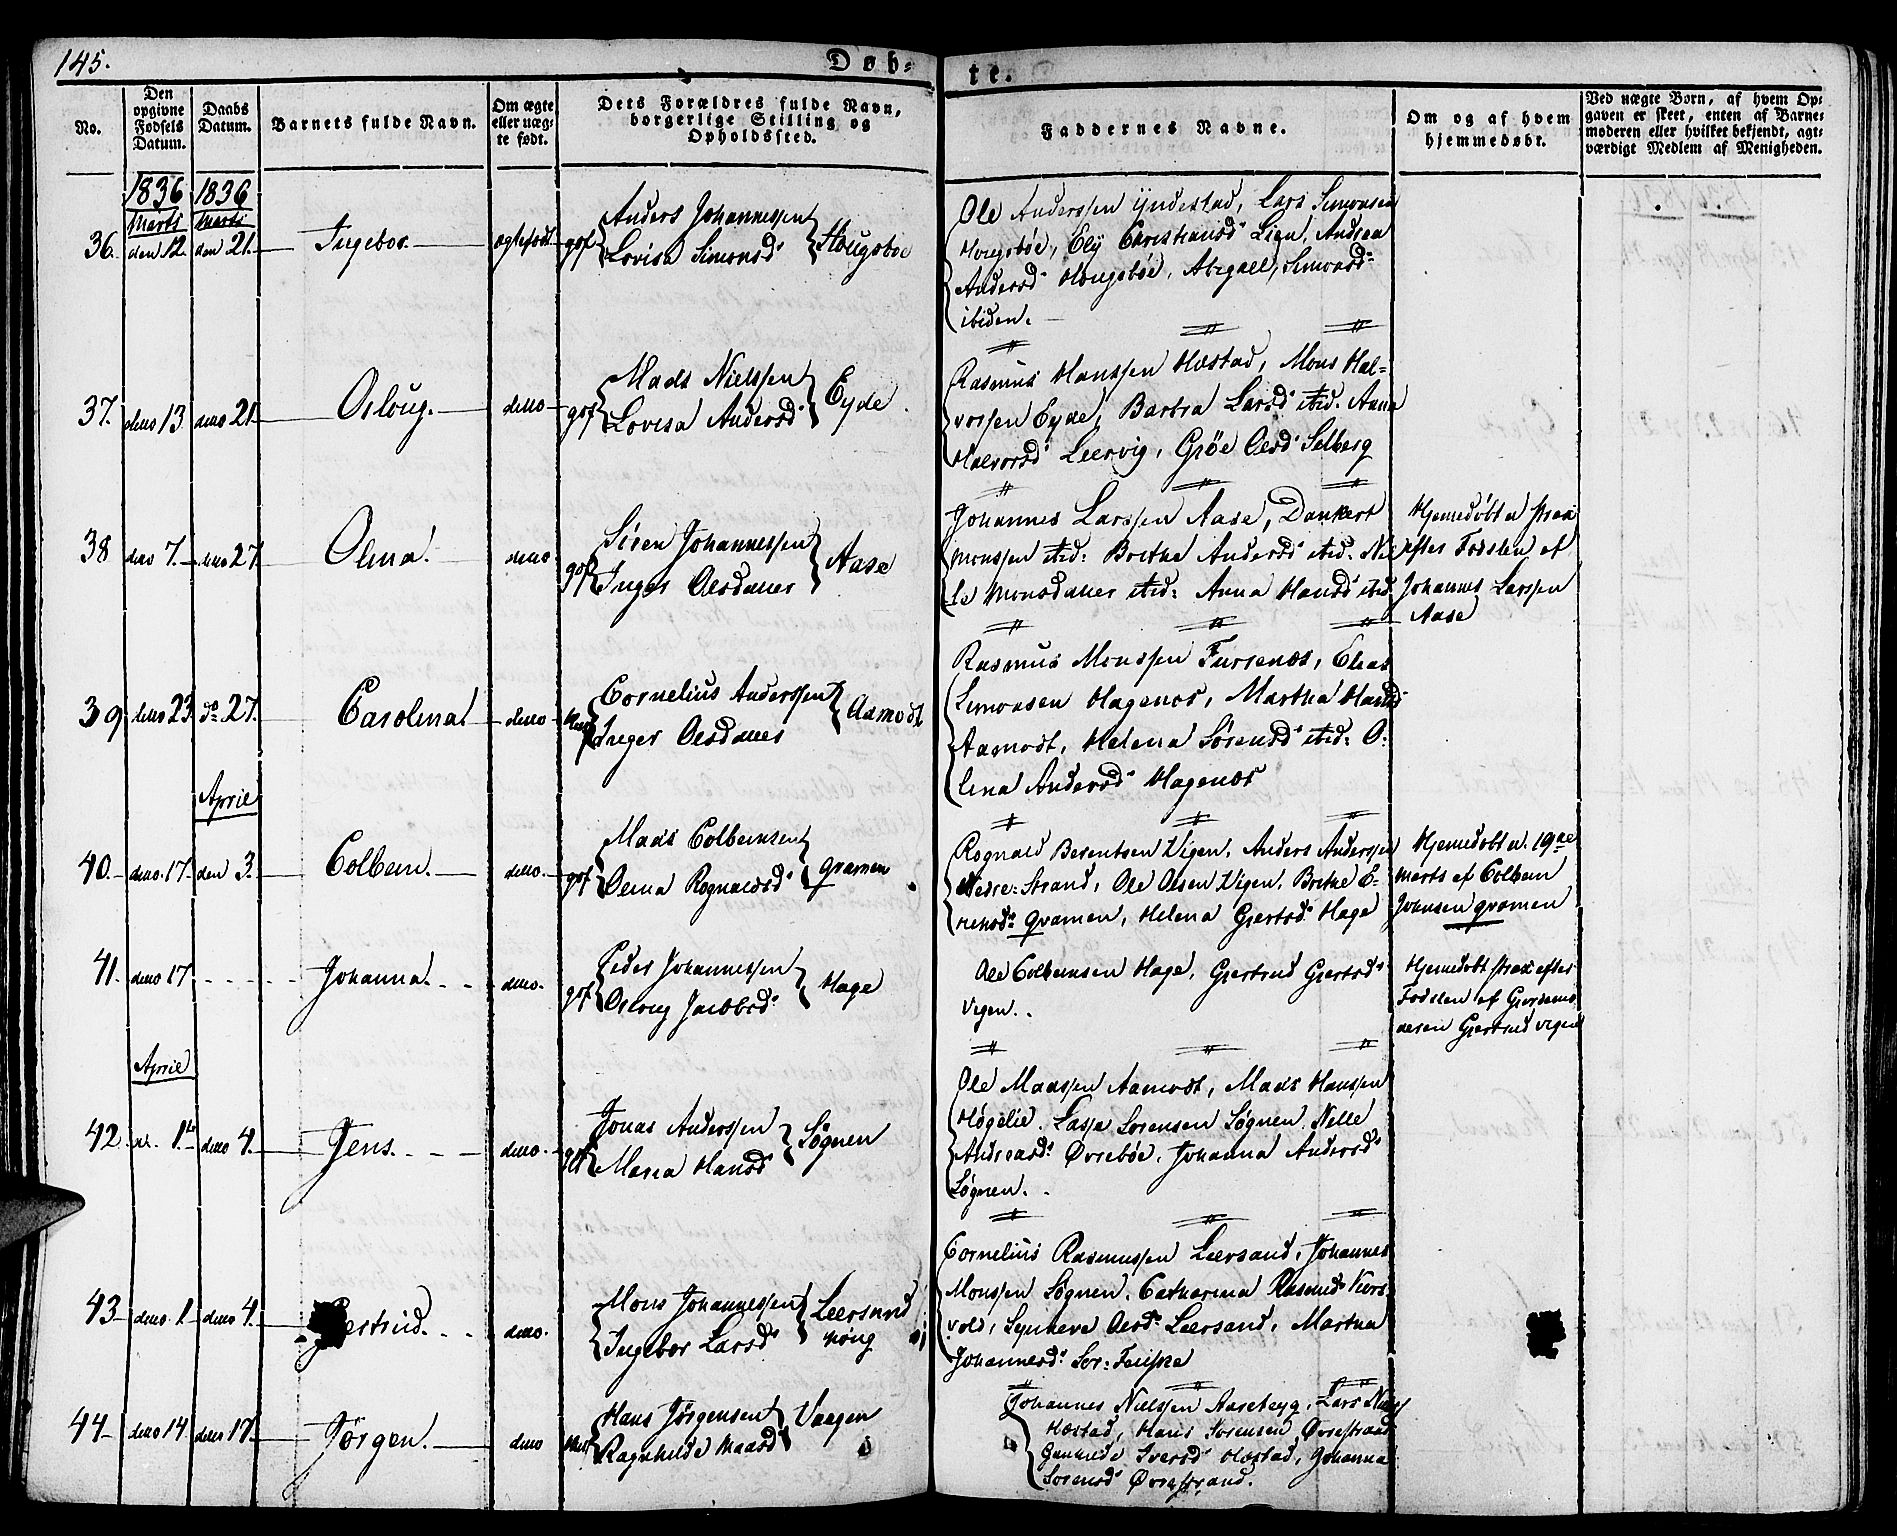 145.
Døb-
te.
No.
Den opgivne Fødsels Datum.
Daabs Datum.
Barnets fulde Navn.
Om ægte eller uægte født.
Dets Forældres fulde Navn, borgerlige Stilling og Opholdssted.
Faddernes Navne.
Om og af hvem hjemmedøbt.
Ved uægte Børn, af hvem Opgaven er skeet, enten af Barnemoderen eller hvilket bekjendt, agtværdigt Medlem af Menigheden.
1836 1836
Marts Marts
36. den 12. den 21. Ingebor. ægtefødt gof Anders Johannessen
Lovisa Simonsd Hougsbøe
Ole Anderssen Yndestad, Lars Simonsen
Hougsbøe, Ely Christiansd Lien, Andrea
Andersd Hougsbøe, Abigael Simonsd
ibiden.
37. detto 13 detto 21. Osloug. detto gof Mads Nielssen
Lovisa Andersd Eyde
Rasmus Hanssen Hæstad, Mons Hal-
vorsen Eyde, Barbra Larsd sted. Anna
Halvorsd Leervig, Grøe Olesd Selberg
38 detto 7. detto 27 Olina. detto gof Siren Johannessen
Inger Olesdatter Aase
Johannes Larssen Aase, Dankert
Monssen sted: Brithe Andersd sted. Nil-
le Monsdatter sted: Anna Hansd sted
Hjemmedøbt strax
efter Fødslen af
Johannes Larssen
Aase
39 detto 23. do 27. Carolina. detto Cornelius Anderssen
Inger Olesdatter Aamodt
Rasmus Monssen Fursenæs, Elias
Simonsen Hagenæs, Martha Hansd
Aamodt, Helena Sørensd sted: O-
lina Andersd Hagenæs
April
40. detto. 17. den 3. Colbein. detto. gof Mads Colbeinsen
Olina Rognaldsd Qvamen
Rognald Berentsen Vigen, Anders Anderssen
Nedre-Strand, Ole Olsen Vigen, Brithe E-
riksd. Qvamen, Helena Gjertsd. Hage
Hjemmedøbt d. 19de
Marts af Colbein
Johnsen Qvamen
41. detto 17 Johanna. detto. gof Peder Johannessen
Osloug Jacobsd. Hage
Ole Colbeinsen Hage, Gjertrud Gjertsd.
Vigen.
Hjemmedøbt strax efter
Fødslen af Gjordemo-
deren Gjertrud Vigen
April
42. d. 1te detto 4. Jens. detto. gof Jonas Anderssen
Maria Hansd Søgnen
Ole Madssen Aamodt, Mads Hanssen
Høgelie, Lasse Sørensen Søgnen, Nille
Andreasd. Øvrebøe, Johanna Andersd
Søgnen.
43. detto. 1 detto 4. Gjertrud. detto. Mons Johannessen
Ingebor Larsd Leersund
Cornelius Rasmussen Leersund, Johannes
Monssen Søgnen, Catharina Rasmusd Kors-
vold, Synneva Olesd. Leersund, Martha
Johannesd. Sør-Fenskre
44. detto 14. detto 17. Jørgen. detto Hans Jørgensen
Ragnhilde Madsd Vaagen
Johannes Nielssen Aarebryg, Lars Nielss
Hæstad, Hans Sørensen Øvrestrand
Gunnild Iversd Hæstad, Johanna
Sørensd Øvrestrand.